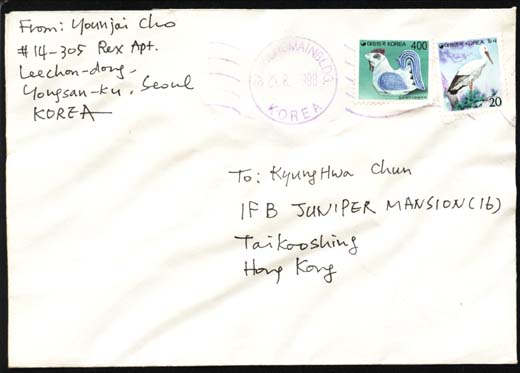 From: Younjai Cho
#14-305 Rex Apt.
Leechon-dong,
Yongsan-Ku, Seoul
KOREA
대한민국 KOREA 400
대한민국 KOREA
20
KOREA
To: KyungHwa Chun
1F B JUNIPER MANSION(16)
Taikooshing
Hong Kong